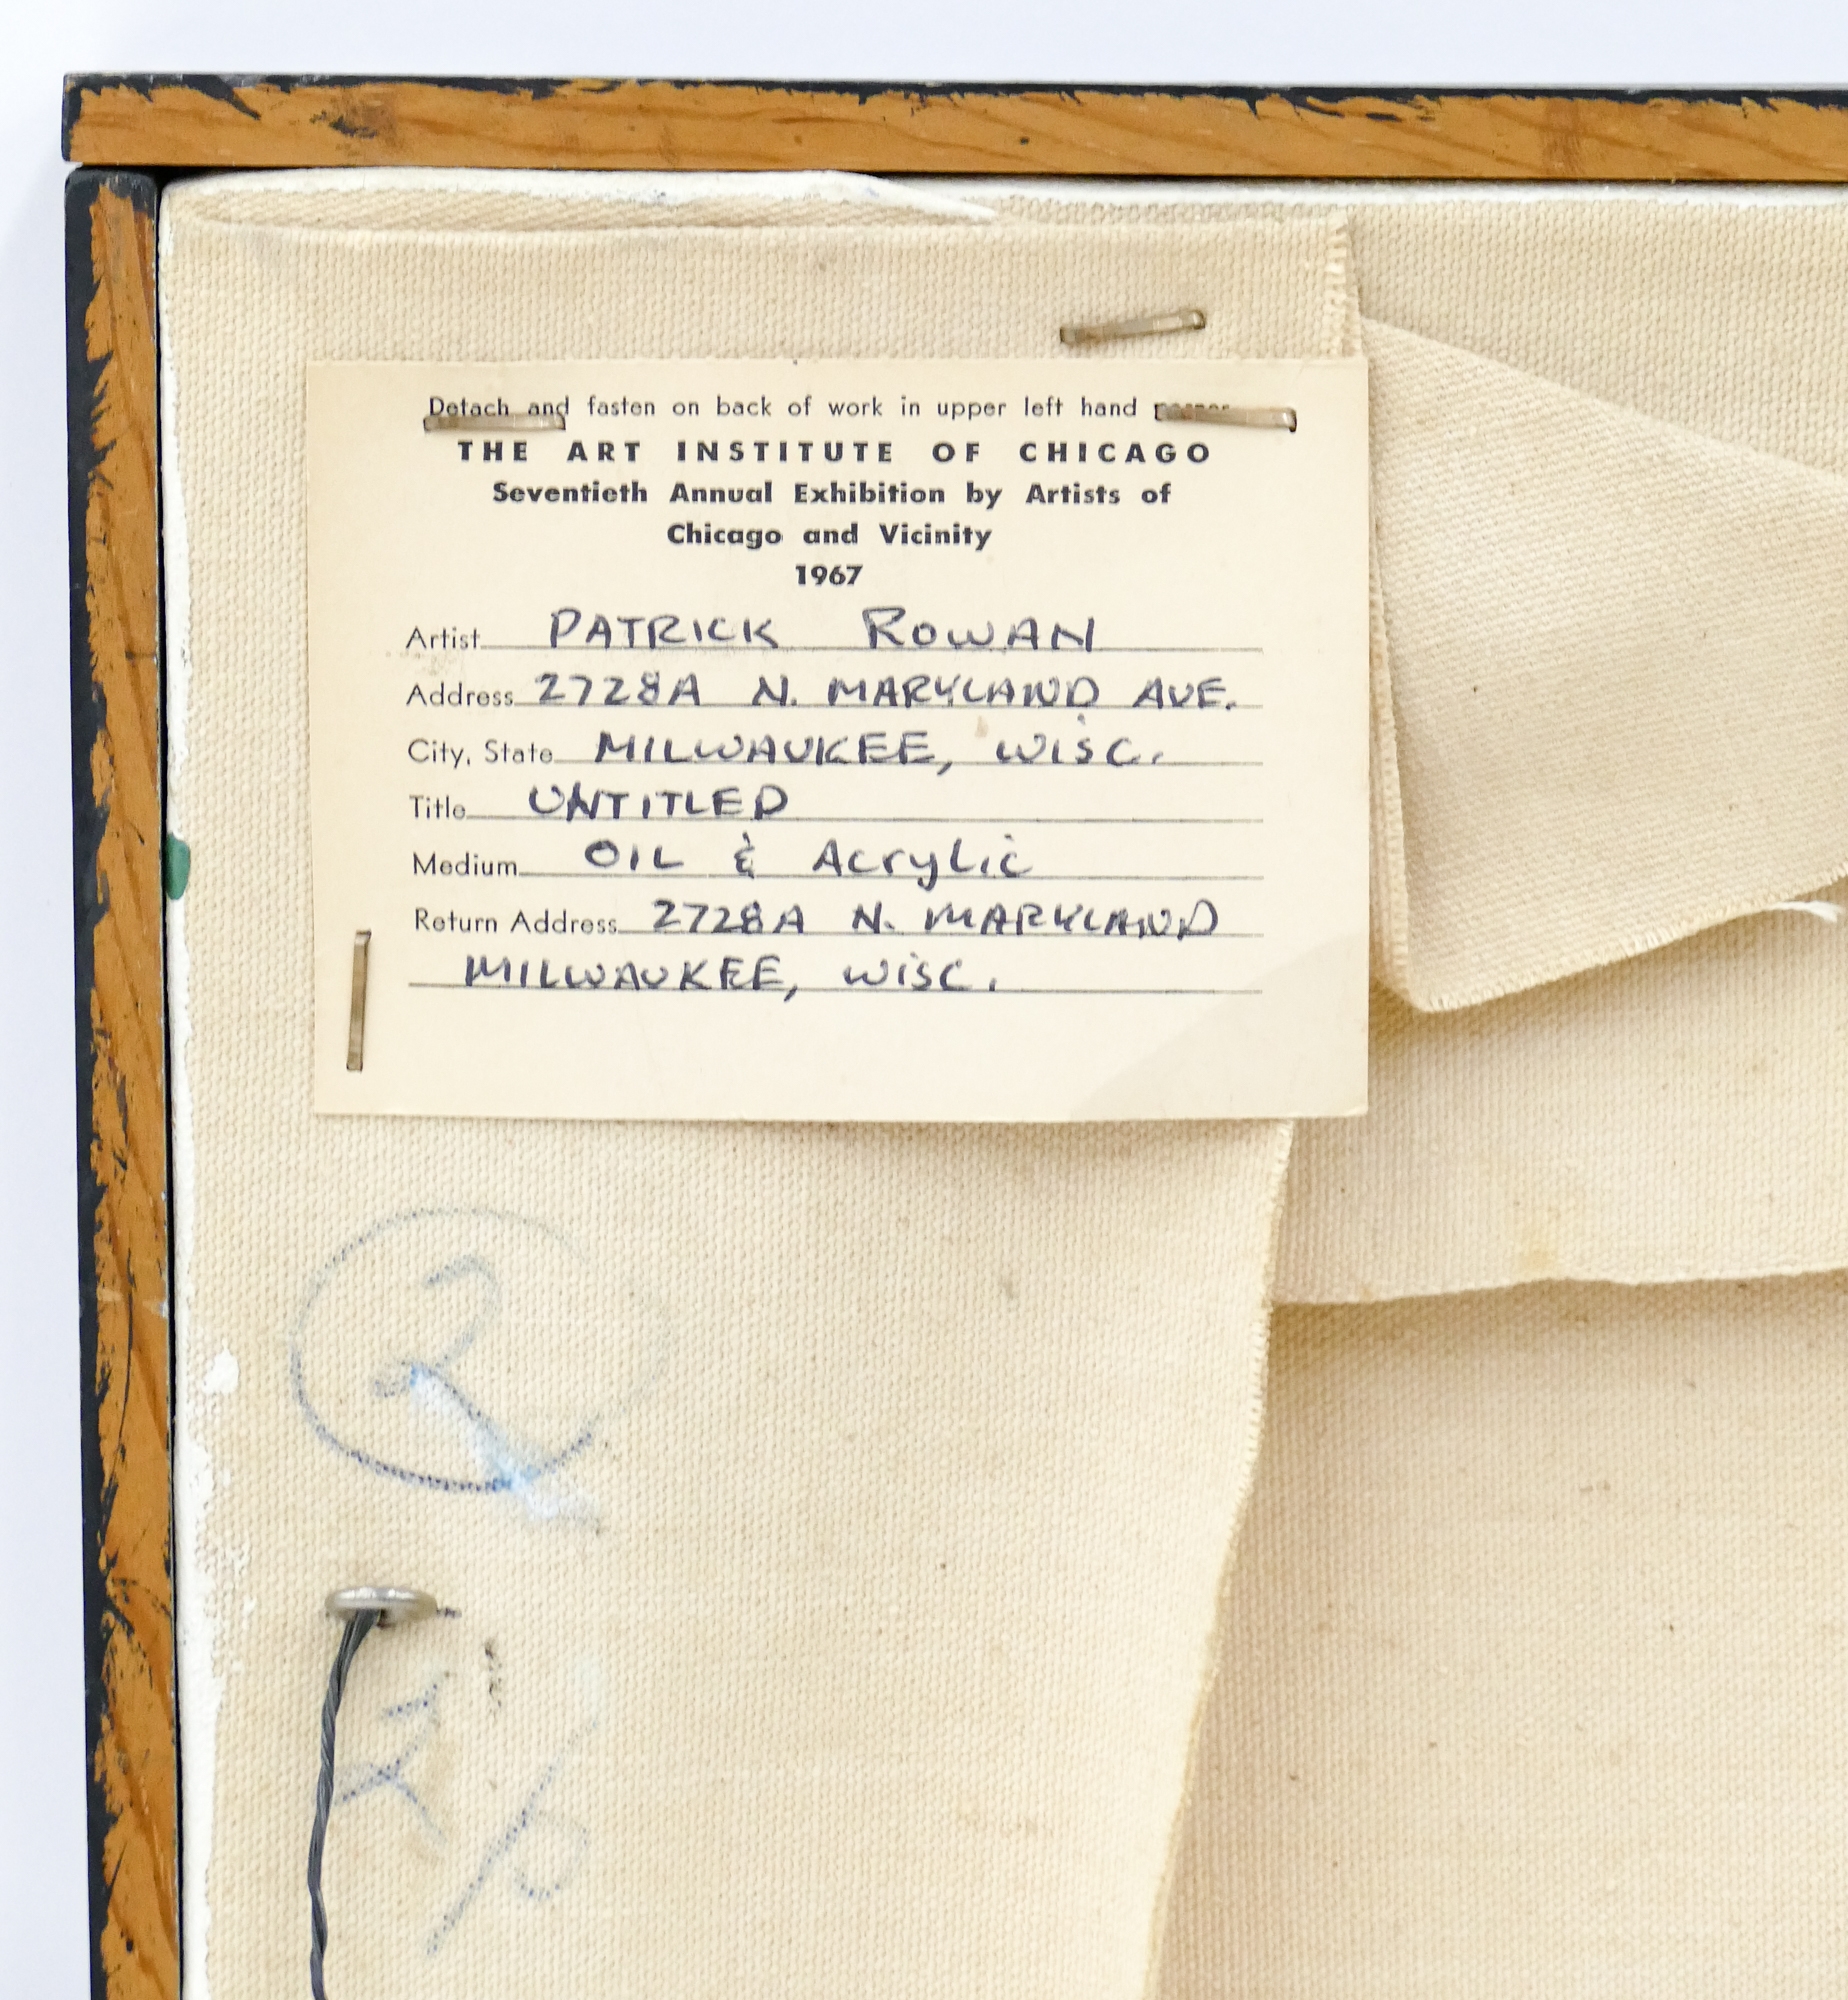 Detach and fasten on back of work in upper left hand
THE ART INSTITUTE OF CHICAGO
Seventieth Annual Exhibition by Artists of
Chicago and Vicinity
1967
Artist PATRICK ROWAN
Address 2728A N. MARYLAND AVE.
City, State MILWAUKEE, WISC.
Title UNTITLED
Medium OIL & Acrylic
Return Address 2728A N. MARYLAND
MILWAUKEE, WISC.
2